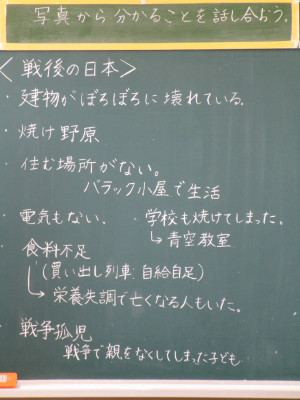 写真から分かることを話し合おう。
＜戦後の日本＞
・建物がぼろぼろに壊れている。
・焼け野原
・住む場所がない。
バラック小屋で生活
・電気もない。 ・学校も焼けてしまった。
↳青空教室
・食料不足
(買い出し列車：自給自足)
↳栄養失調で亡くなる人もいた。
・戦争孤児
戦争で親をなくしてしまった子ども